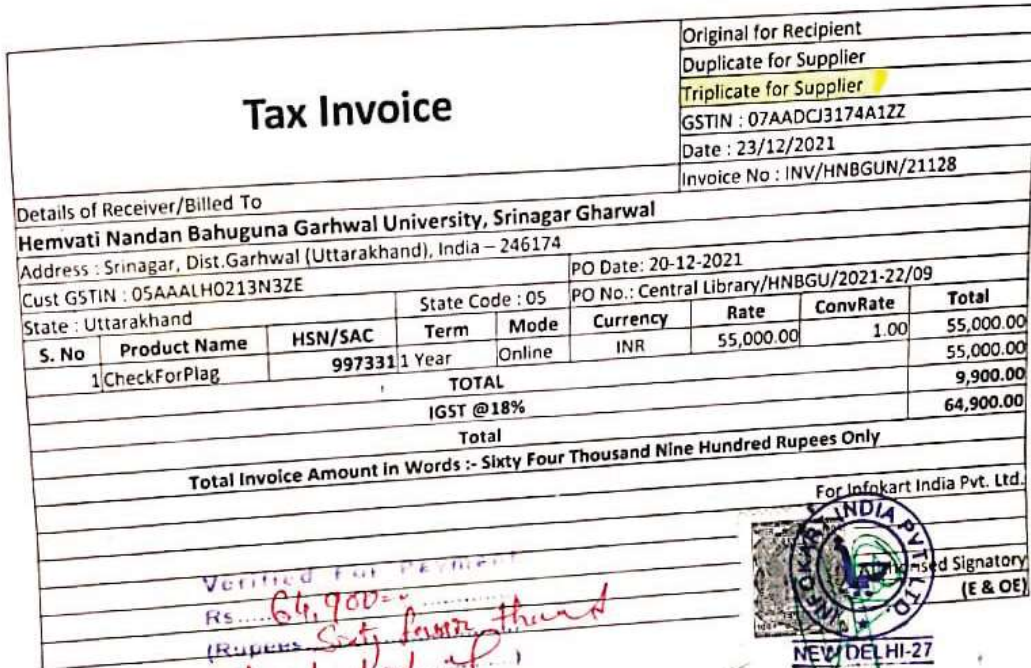 Original for Recipient
Duplicate for Supplier
Triplicate for Supplier
Tax Invoice
GSTIN : 07AADCJ3174A1ZZ
Date : 23/12/2021
Invoice No : INV/HNBGUN/21128
Details of Receiver/Billed To
Hemvati Nandan Bahuguna Garhwal University, Srinagar Gharwal
Address : Srinagar, Dist.Garhwal (Uttarakhand), India – 246174
Cust GSTIN : 05AAALH0213N3ZE PO Date: 20-12-2021
State : Uttarakhand State Code : 05 PO No.: Central Library/HNBGU/2021-22/09
S. No Product Name HSN/SAC Term Mode Currency Rate ConvRate Total
1 CheckForPlag 997331 1 Year Online INR 55,000.00 1.00 55,000.00
TOTAL 55,000.00
IGST @18% 9,900.00
Total 64,900.00
Total Invoice Amount in Words :- Sixty Four Thousand Nine Hundred Rupees Only
For Infokart India Pvt. Ltd.
INFOKART INDIA PVT. LTD.
Authorised Signatory
(E & OE)
NEW DELHI-27
Verified For Payment
Rs. 64,900=
(Rupees Sixty four thousand